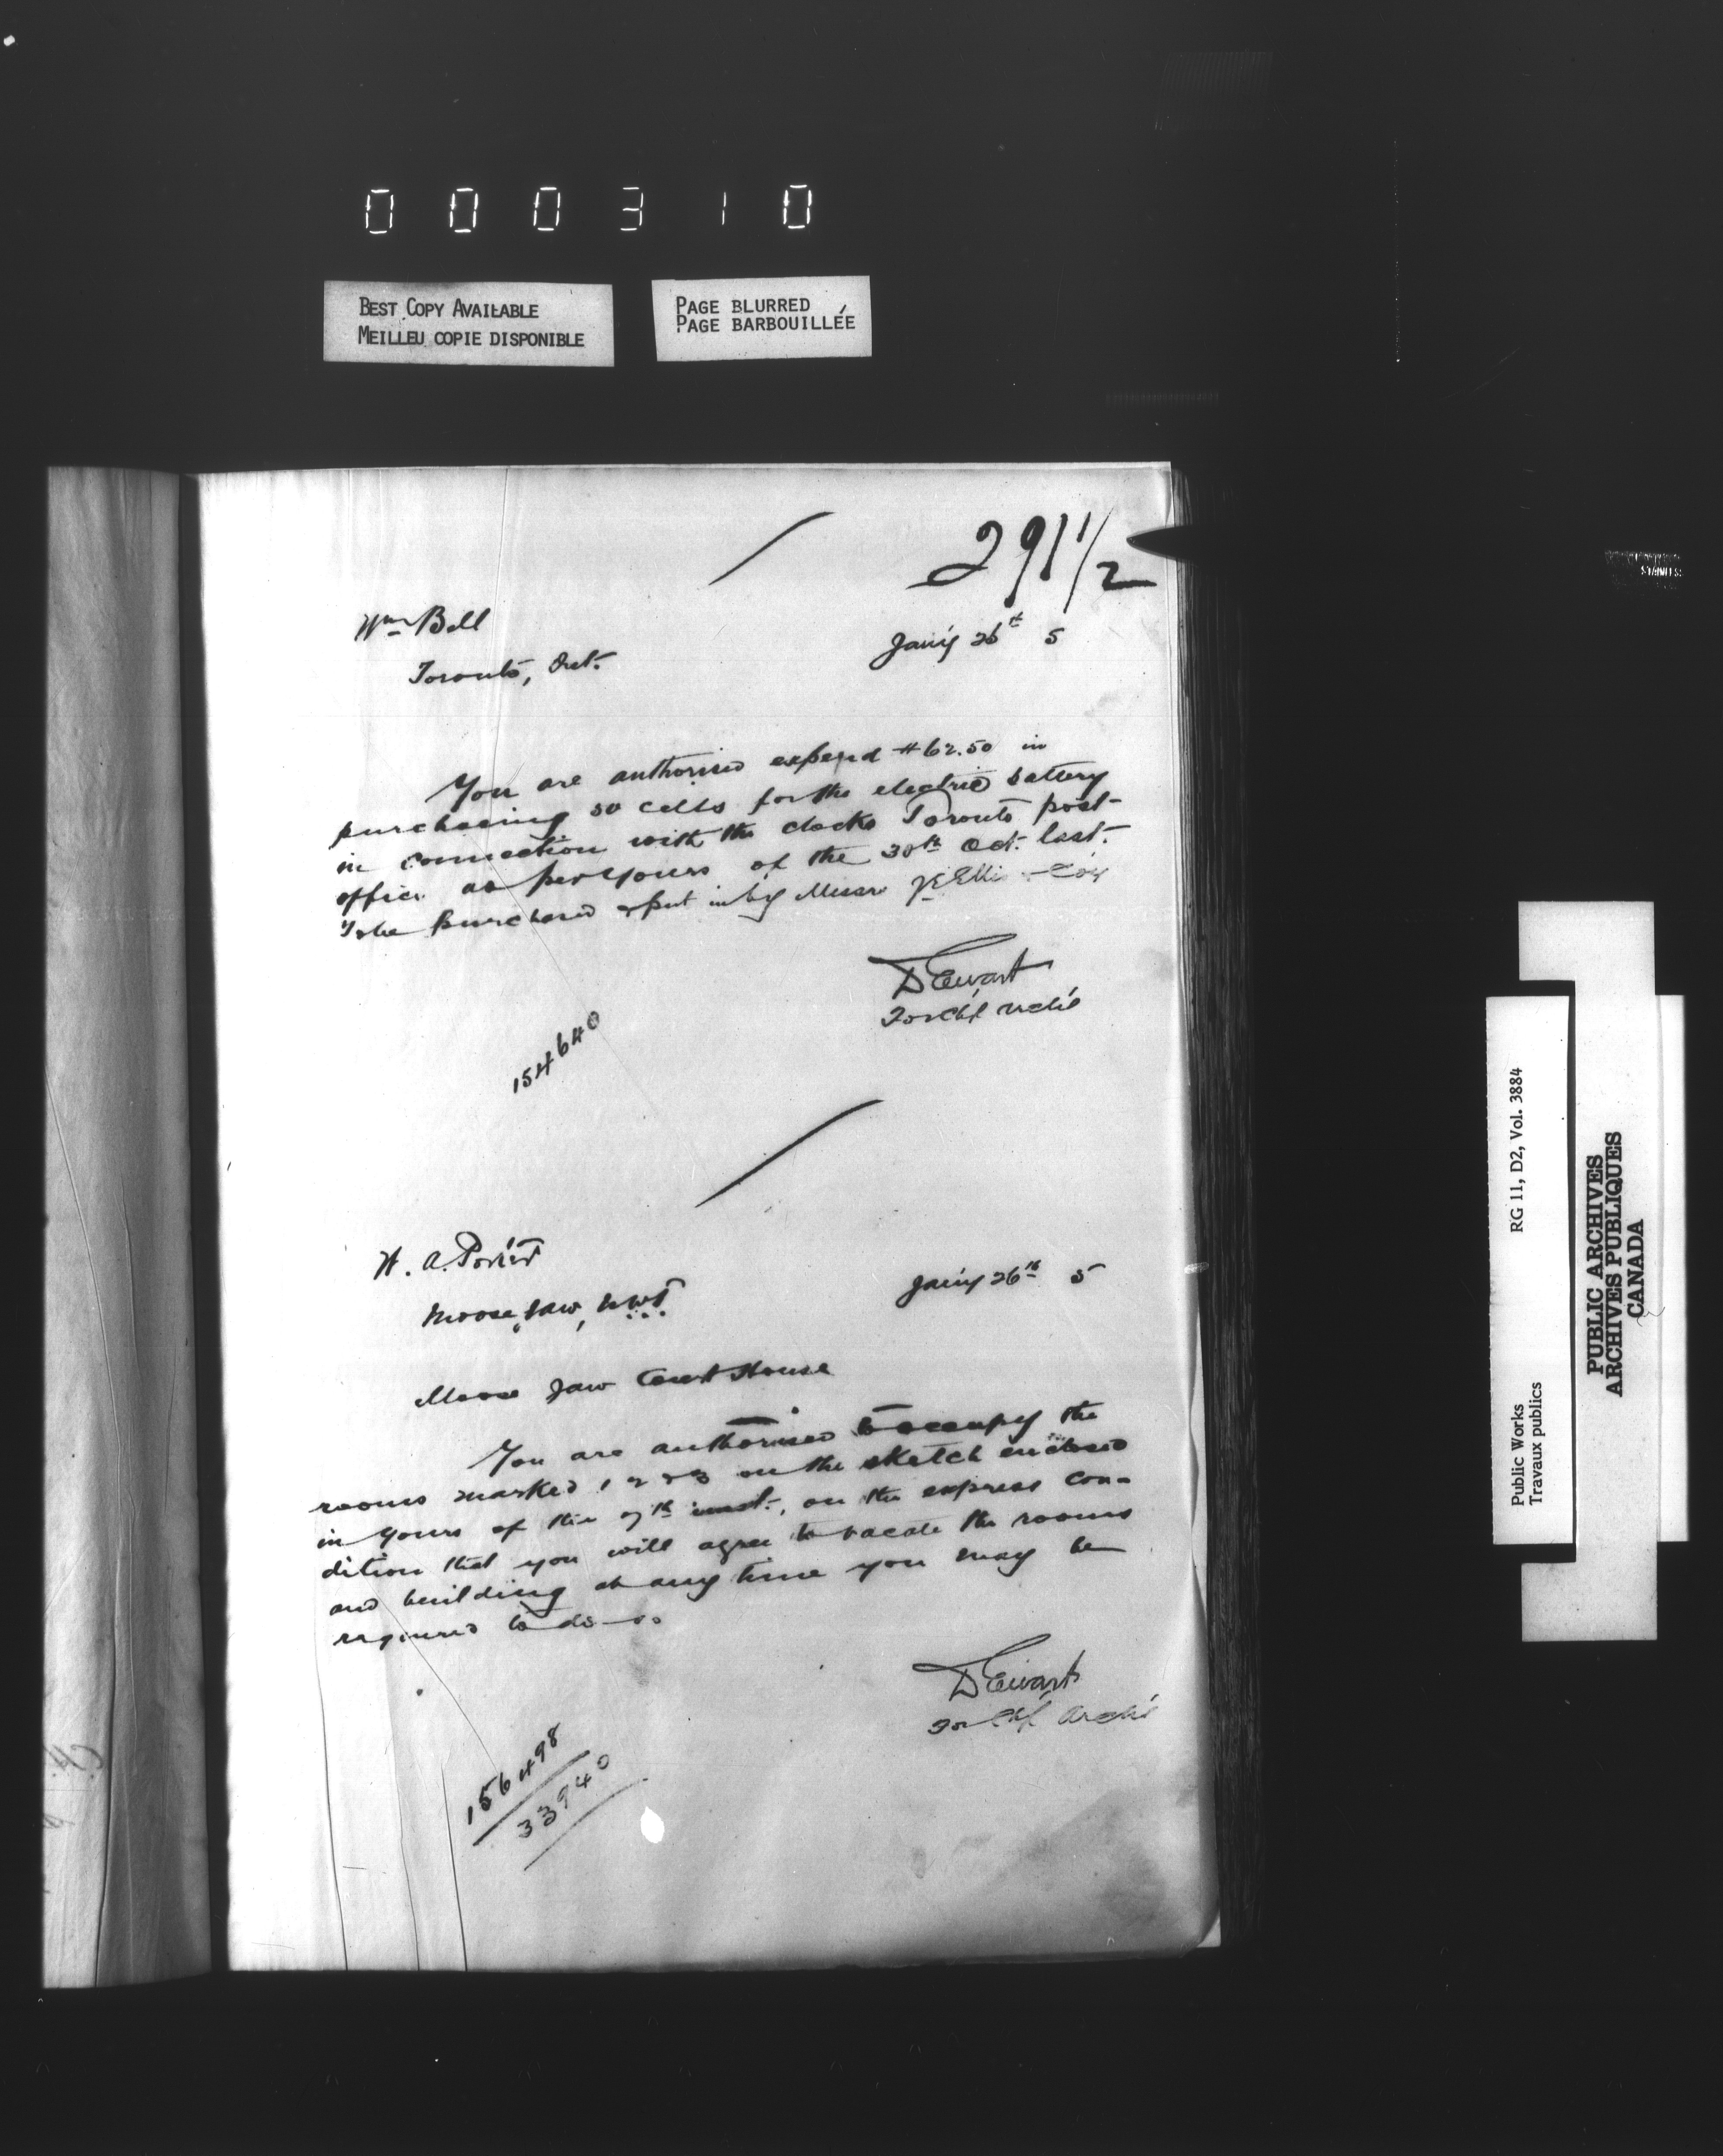 000310
BEST COPY AVAILABLE
MEILLEU COPIE DISPONIBLE
PAGE BLURRED
PAGE BARBOUILLÉE
291 1/2
Wm Bell
Jan'y 26th 5
Toronto, Ont.
You are authorised expend $62.50 in
purchasing 50 cells for the electric battery
in connection with the clocks Toronto post-
office as per yours of the 30th Oct. last.
To be purchased & put in by Messrs J E Ellis & Co'y
D Ewart
For Ch'f Archt
154640
W. A.
Jan'y 26th 5
Moose Jaw, N.W.T.
Moose Jaw Court House
You are authorised to occupy the
rooms marked 1 2 & 3 on the sketch enclosed
in yours of the 7th inst., on the express con-
dition that you will agree to vacate the rooms
and building at any time you may be
required to do so
D Ewart
For Ch'f Archt
156498
33940
RG 11, D2, Vol. 3884
Public Works
Travaux publics
PUBLIC ARCHIVES
ARCHIVES PUBLIQUES
CANADA